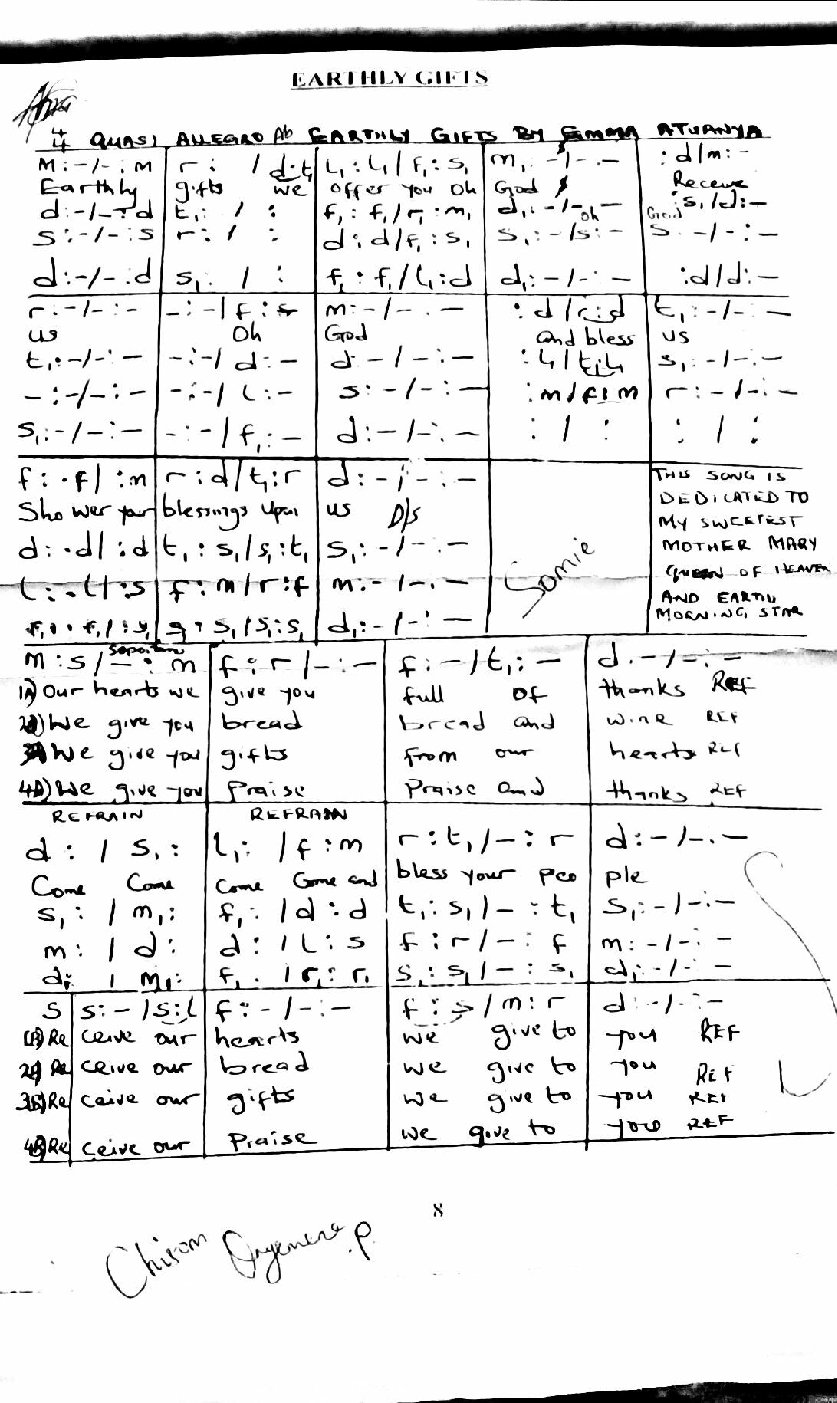 EARTHLY GIFTS
4/4 QUASI ALLEGRO Ab EARTHLY GIFTS BY EMMA ATUANYA
M:-/-:m | r: / d:t, | l,:l,/f,:s, | m,:-/-:- | :d/m:-
Earthly gifts we offer you Oh God Receive
d:-/-:d | t,: / : | f,:f,/r,:m, | d,:-/-:- | :s,/d:-
Oh Great
s:-/-:s | r: / : | d:d/f,:s, | s,:-/s:- | s:-/-:-
d:-/-:d | s,: / : | f,:f,/l,:d | d,:-/-:- | :d/d:-
r:-/-:- | -:-/f:s | m:-/-:- | :d/r:d | t,:-/-:-
us Oh God and bless us
t,:-/-:- | -:-/d:- | d:-/-:- | :l,/t,:l, | s,:-/-:-
-:-/-:- | -:-/l:- | s:-/-:- | :m/f:m | r:-/-:-
s,:-/-:- | -:-/f,:- | d:-/-:- | : / : | : / :
f:.f/:m | r:d/t,:r | d:-/-:-
Sho wer your blessings upon us D/S
d:.d/:d | t,:s,/s,:t, | s,:-/-:-
l:.l/:s | f:m/r:f | m:-/-:-
f,:.f,/:s, | g:s,/s,:s, | d,:-/-:-
Somie
THIS SONG IS
DEDICATED TO
MY SWEETEST
MOTHER MARY
QUEEN OF HEAVEN
AND EARTH
MORNING STAR
m:s/-:m | f:r/-:- | f:-/t,:- | d:-/-:-
1A) Our hearts we give you full of thanks REF
2A) We give you bread bread and wine REF
3A) We give you gifts from our hearts REF
4A) We give you Praise Praise and thanks REF
REFRAIN REFRAIN
d: / s,: | l,: /f:m | r:t,/-:r | d:-/-:-
Come Come Come Come and bless your peo ple
s,: / m,: | f,: /d:d | t,:s,/-:t, | s,:-/-:-
m: / d: | d: /l:s | f:r/-:f | m:-/-:-
d,: / m,: | f,: /r,:r, | s,:s,/-:s, | d,:-/-:-
s | s:-/s:l | f:-/-:- | f:s/m:r | d:-/-:-
1B) Re ceive our hearts we give to you REF
2B) Re ceive our bread we give to you REF
3B) Re ceive our gifts we give to you REF
4B) Re ceive our Praise we give to you REF
8
Chisom